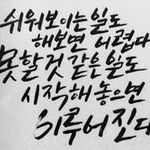 쉬워보이는 일도
해보면 어렵다
못할 것 같은 일도
시작해 놓으면
이루어진다